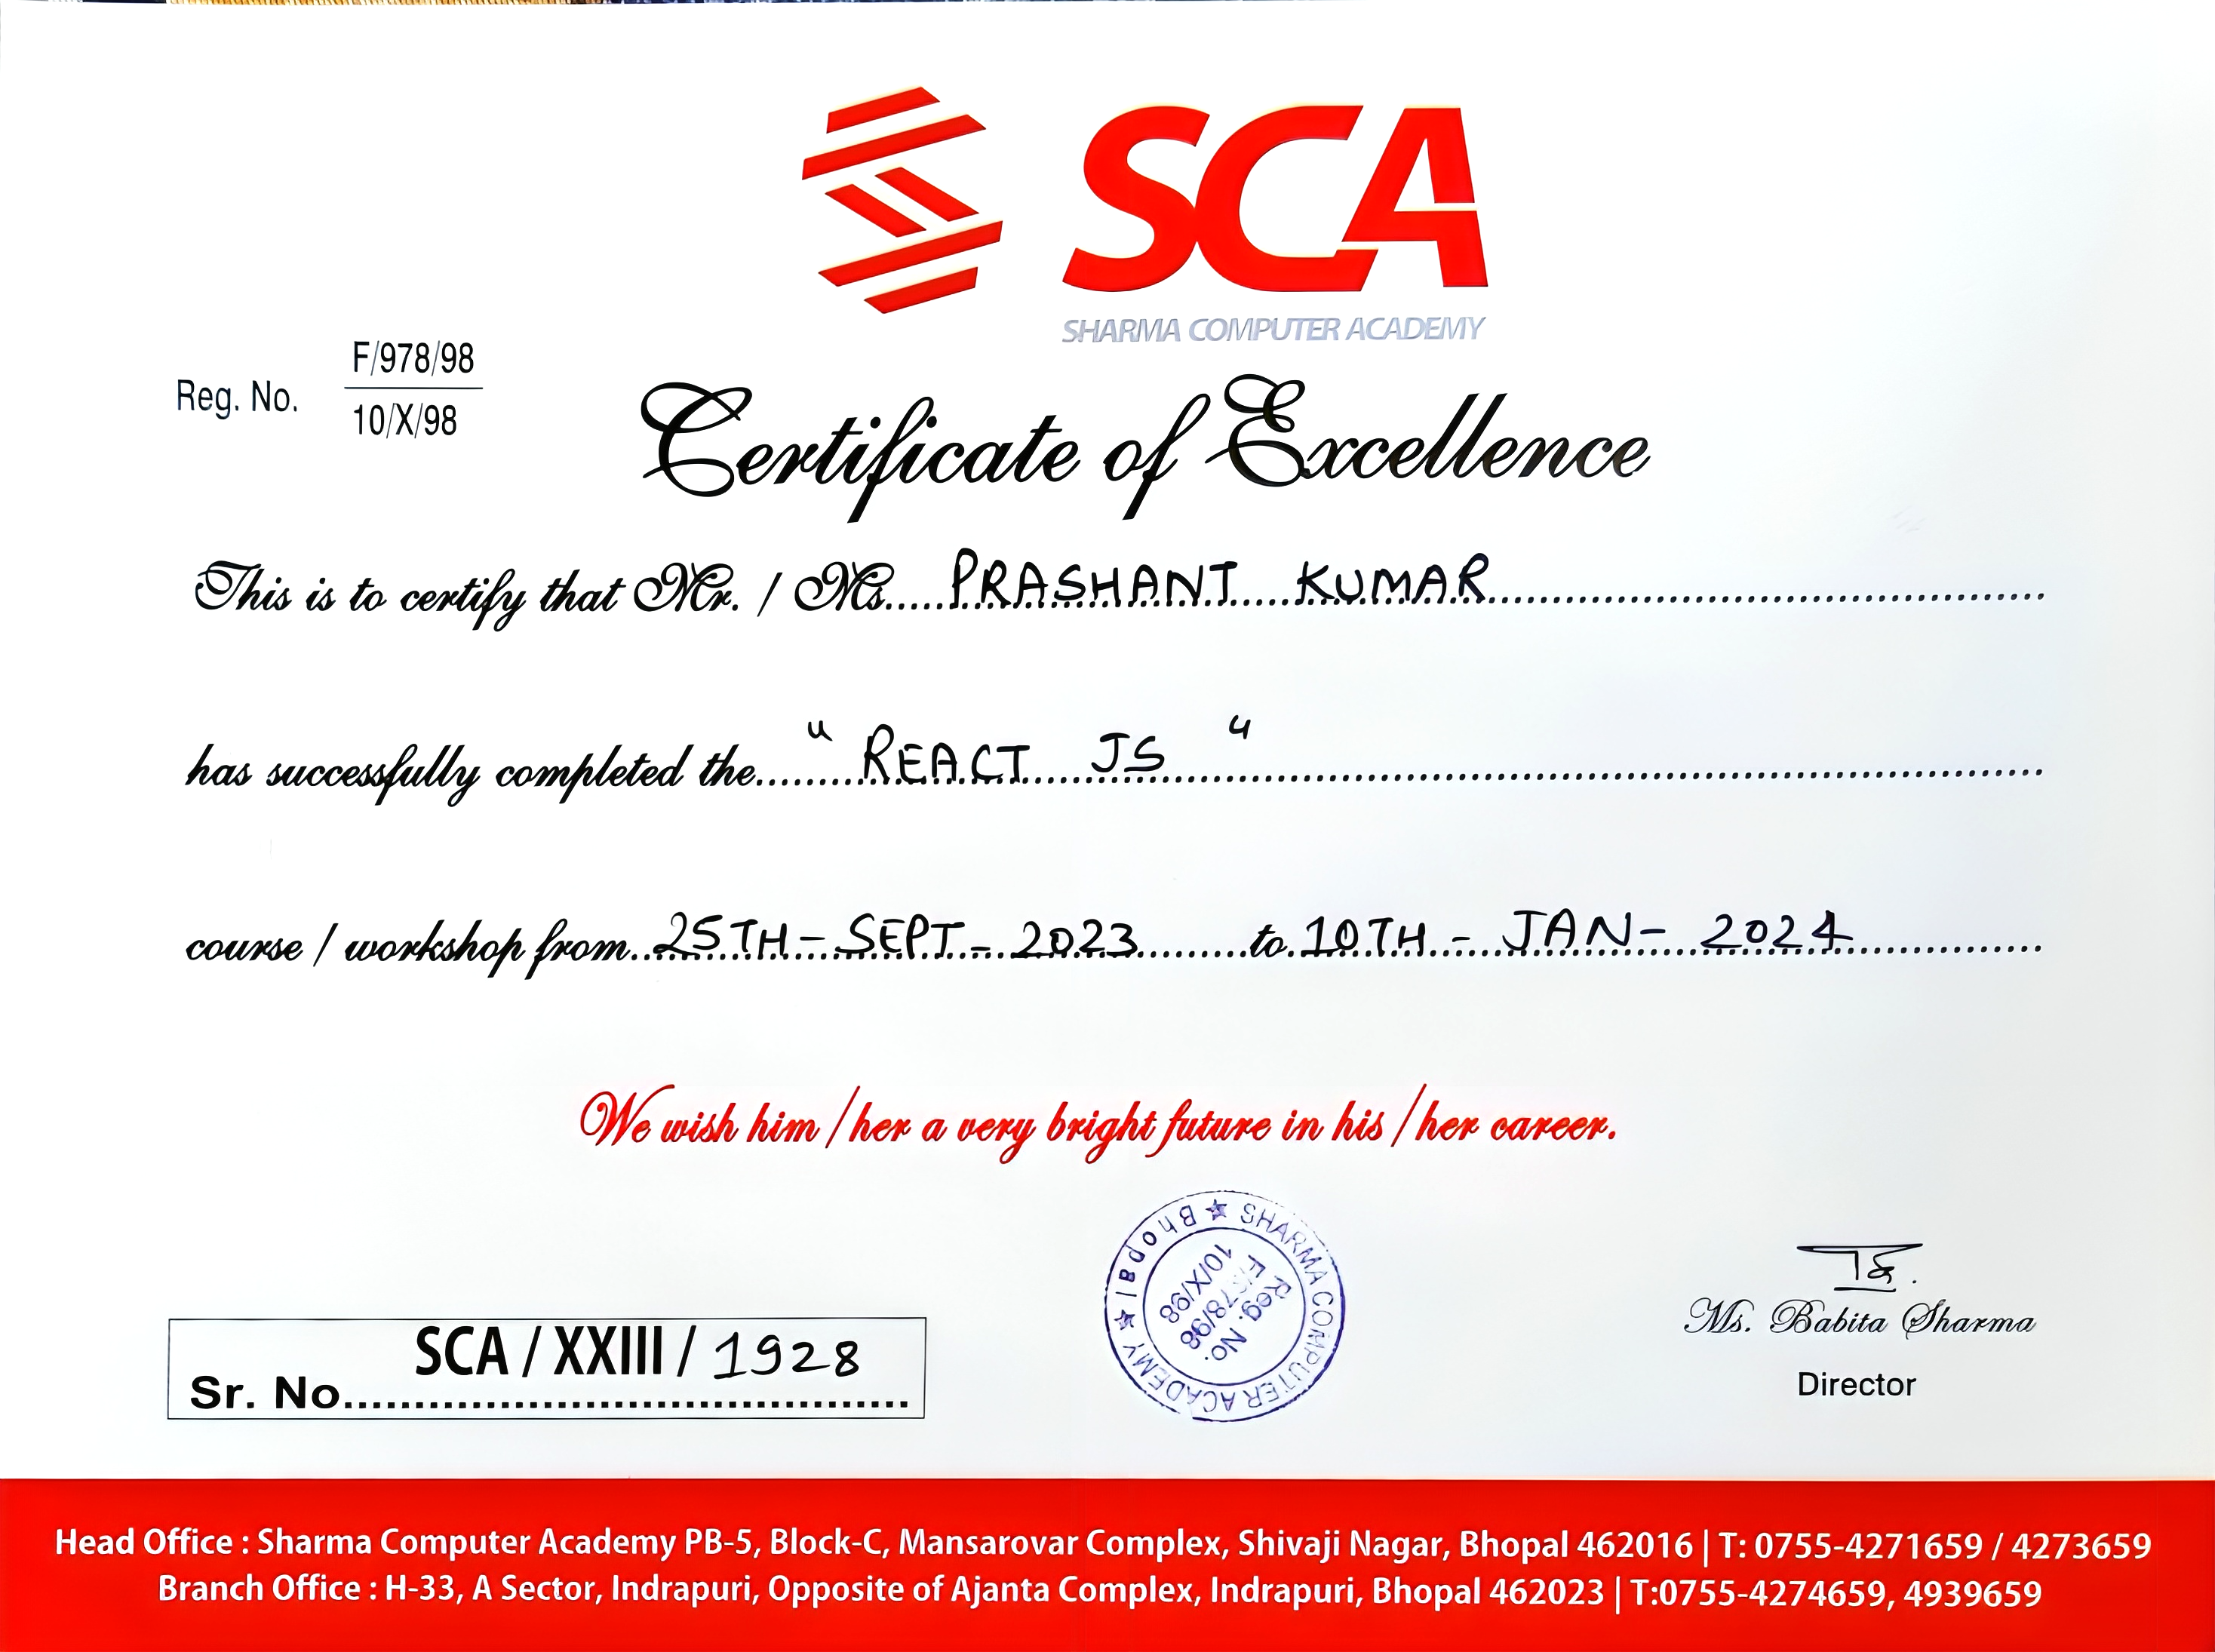 SCA
SHARMA COMPUTER ACADEMY
Reg. No. F/978/98
10/X/98
Certificate of Excellence
This is to certify that Mr. / Ms..... PRASHANT KUMAR
has successfully completed the....... " REACT JS "
course / workshop from.. 25TH - SEPT - 2023 to 10TH - JAN - 2024
We wish him / her a very bright future in his / her career.
SHARMA COMPUTER ACADEMY ★ Bhopal ★
Reg. No.
F/978/98
10/X/98
Ms. Babita Sharma
Director
SCA / XXIII / 1928
Sr. No........................................
Head Office : Sharma Computer Academy PB-5, Block-C, Mansarovar Complex, Shivaji Nagar, Bhopal 462016 | T: 0755-4271659 / 4273659
Branch Office : H-33, A Sector, Indrapuri, Opposite of Ajanta Complex, Indrapuri, Bhopal 462023 | T:0755-4274659, 4939659